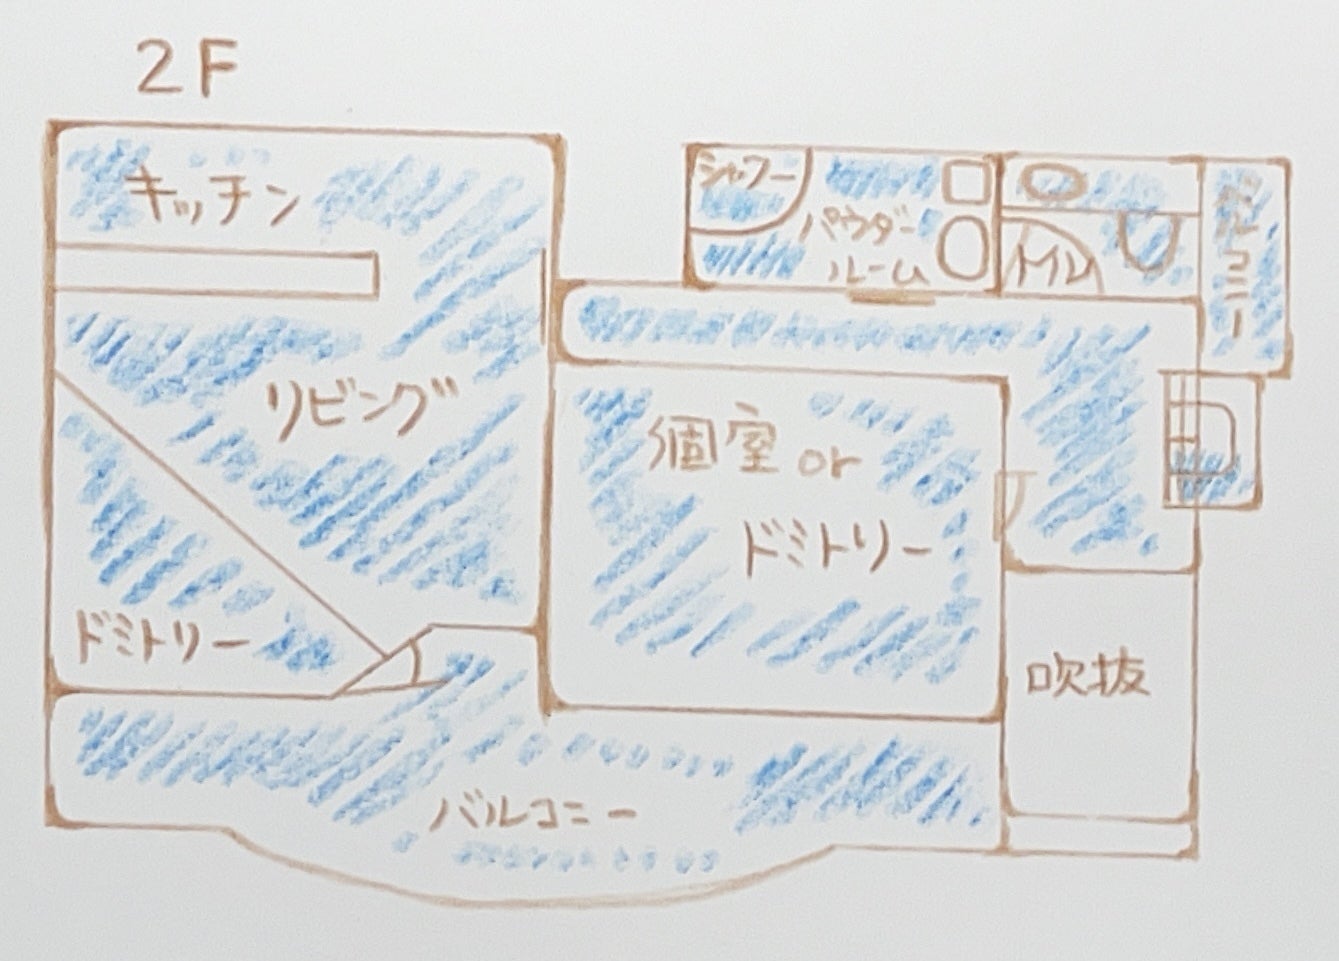 2F
キッチン
シャワー
パウダー
ルーム
トイレ
バルコニー
リビング
個室 or
ドミトリー
ドミトリー
吹抜
バルコニー